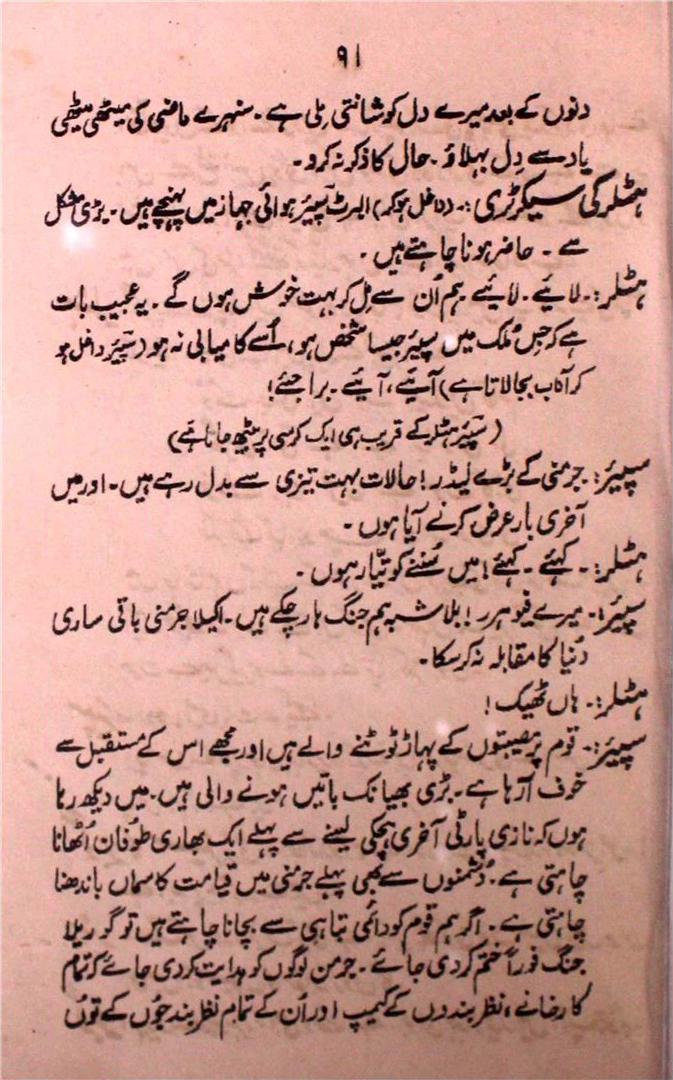 ۹۱
دنوں کے بعد میرے دل کو شانتی مِلی ہے۔ سنہرے ماضی کی میٹھی میٹھی
یاد سے دِل بہلاؤ۔ حال کا ذکر نہ کرو۔
ہٹلر کی سیکرٹری:۔ (داخل ہو کر) البرٹ سپیئر ہوائی جہاز میں پہنچے ہیں۔ بڑی مشکل
سے۔ حاضر ہونا چاہتے ہیں۔
ہٹلر:۔ لائیے۔ لائیے ہم اُن سے مِل کر بہت خوش ہوں گے۔ یہ عجیب بات
ہے کہ جِس مُلک میں سپیئر جیسا شخص ہو، اُسے کامیابی نہ ہو (سپیئر داخل ہو
کر آداب بجالاتا ہے) آئیے، آئیے۔ براجئے!
(سپیئر ہٹلر کے قریب ہی ایک کرسی پر بیٹھ جاتا ہے)
سپیئر:۔ جرمنی کے بڑے لیڈر! حالات بہت تیزی سے بدل رہے ہیں۔ اور میں
آخری بار عرض کرنے آیا ہوں۔
ہٹلر:۔ کہئے۔ کہئے! میں سُننے کو تیّار ہوں۔
سپیئر:۔ میرے فیوہرر! بلاشبہ ہم جنگ ہار چکے ہیں۔ اکیلا جرمنی باقی ساری
دُنیا کا مقابلہ نہ کرسکا۔
ہٹلر:۔ ہاں ٹھیک!
سپیئر:۔ قوم پر مصیبتوں کے پہاڑ ٹوٹنے والے ہیں اور مجھے اس کے مستقبل سے
خوف آرہا ہے۔ بڑی بھیانک باتیں ہونے والی ہیں۔ میں دیکھ رہا
ہوں کہ نازی پارٹی آخری ہچکی لینے سے پہلے ایک بھاری طوفان اُٹھانا
چاہتی ہے۔ دُشمنوں سے بھی پہلے جرمنی میں قیامت کا سماں باندھنا
چاہتی ہے۔ اگر ہم قوم کو دائمی تباہی سے بچانا چاہتے ہیں تو گوریلا
جنگ فوراً ختم کردی جائے۔ جرمن لوگوں کو ہدایت کردی جائے کہ تمام
کارخانے، نظر بندوں کے کیمپ اور اُن کے تمام نظر بند جوں کے توں